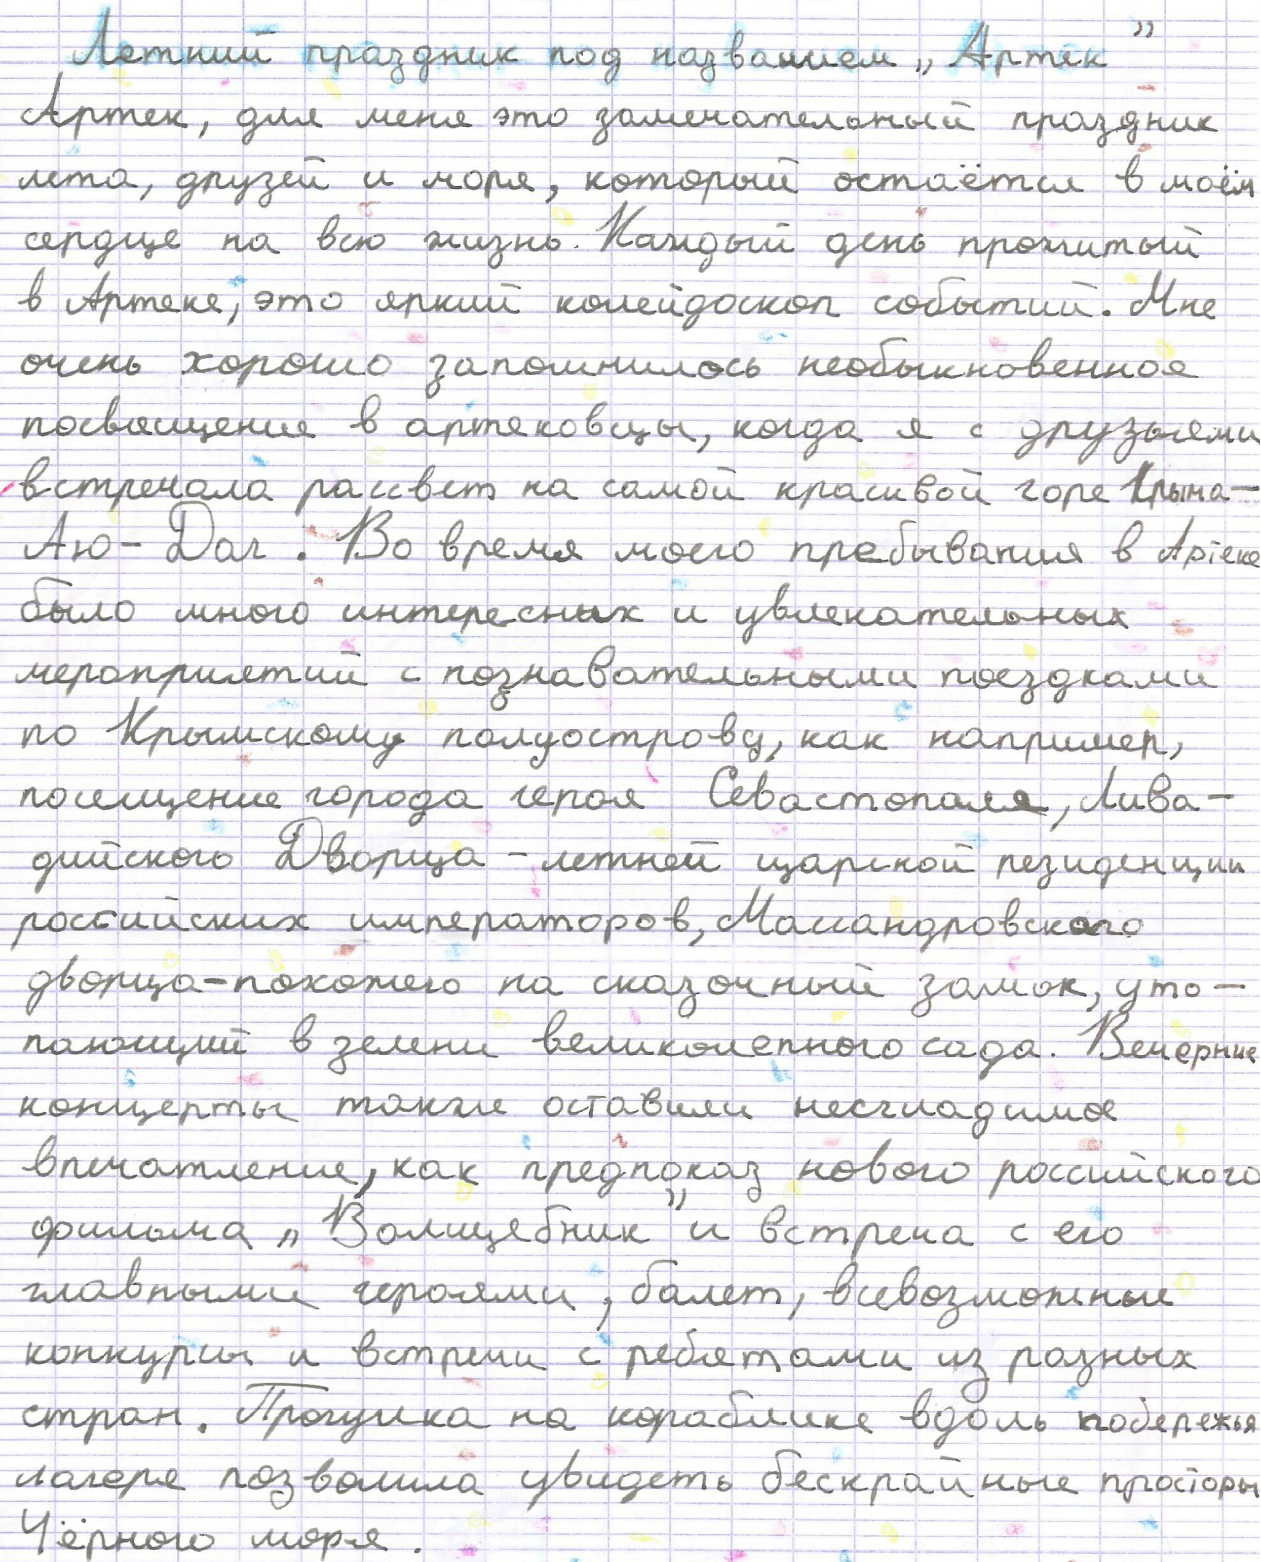 Летний праздник под названием „Артек”
Артек, для меня это замечательный праздник
лета, друзей и моря, который остаётся в моём
сердце на всю жизнь. Каждый день прожитый
в Артеке, это яркий колейдоскоп событий. Мне
очень хорошо запомнилось необыкновенное
посвещение в артековцы, когда я с друзьями
встречала рассвет на самой красивой горе Крыма-
Аю-Даг. Во время моего пребывания в Артеке
было много интересных и увлекательных
мероприятий с познавательными поездками
по Крымскому полуострову, как например,
посещение города героя Севастополя, Лива-
дийского Дворца - летней царской резиденции
российских императоров, Массандровского
дворца-похожего на сказочный замок, уто-
пающий в зелени великолепного сада. Вечерние
концерты также оставили несгладимое
впечатление, как предпоказ нового российского
фильма „Волшебник” и встреча с его
главными героями, балет, всевозможные
конкурсы и встречи с ребятами из разных
стран. Прогулка на кораблике вдоль побережья
лагеря позволила увидеть бескрайные просторы
Чёрного моря.